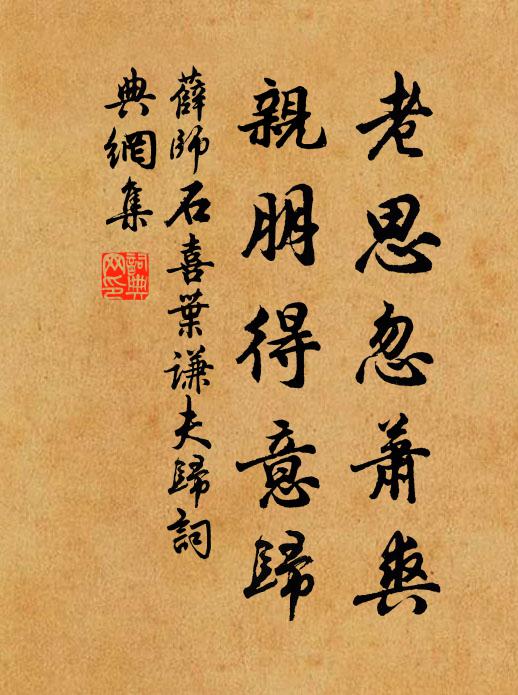 老思忽蕭爽
親朋得意歸
薛師石喜葉謙夫歸詞
典網集
詞典網印